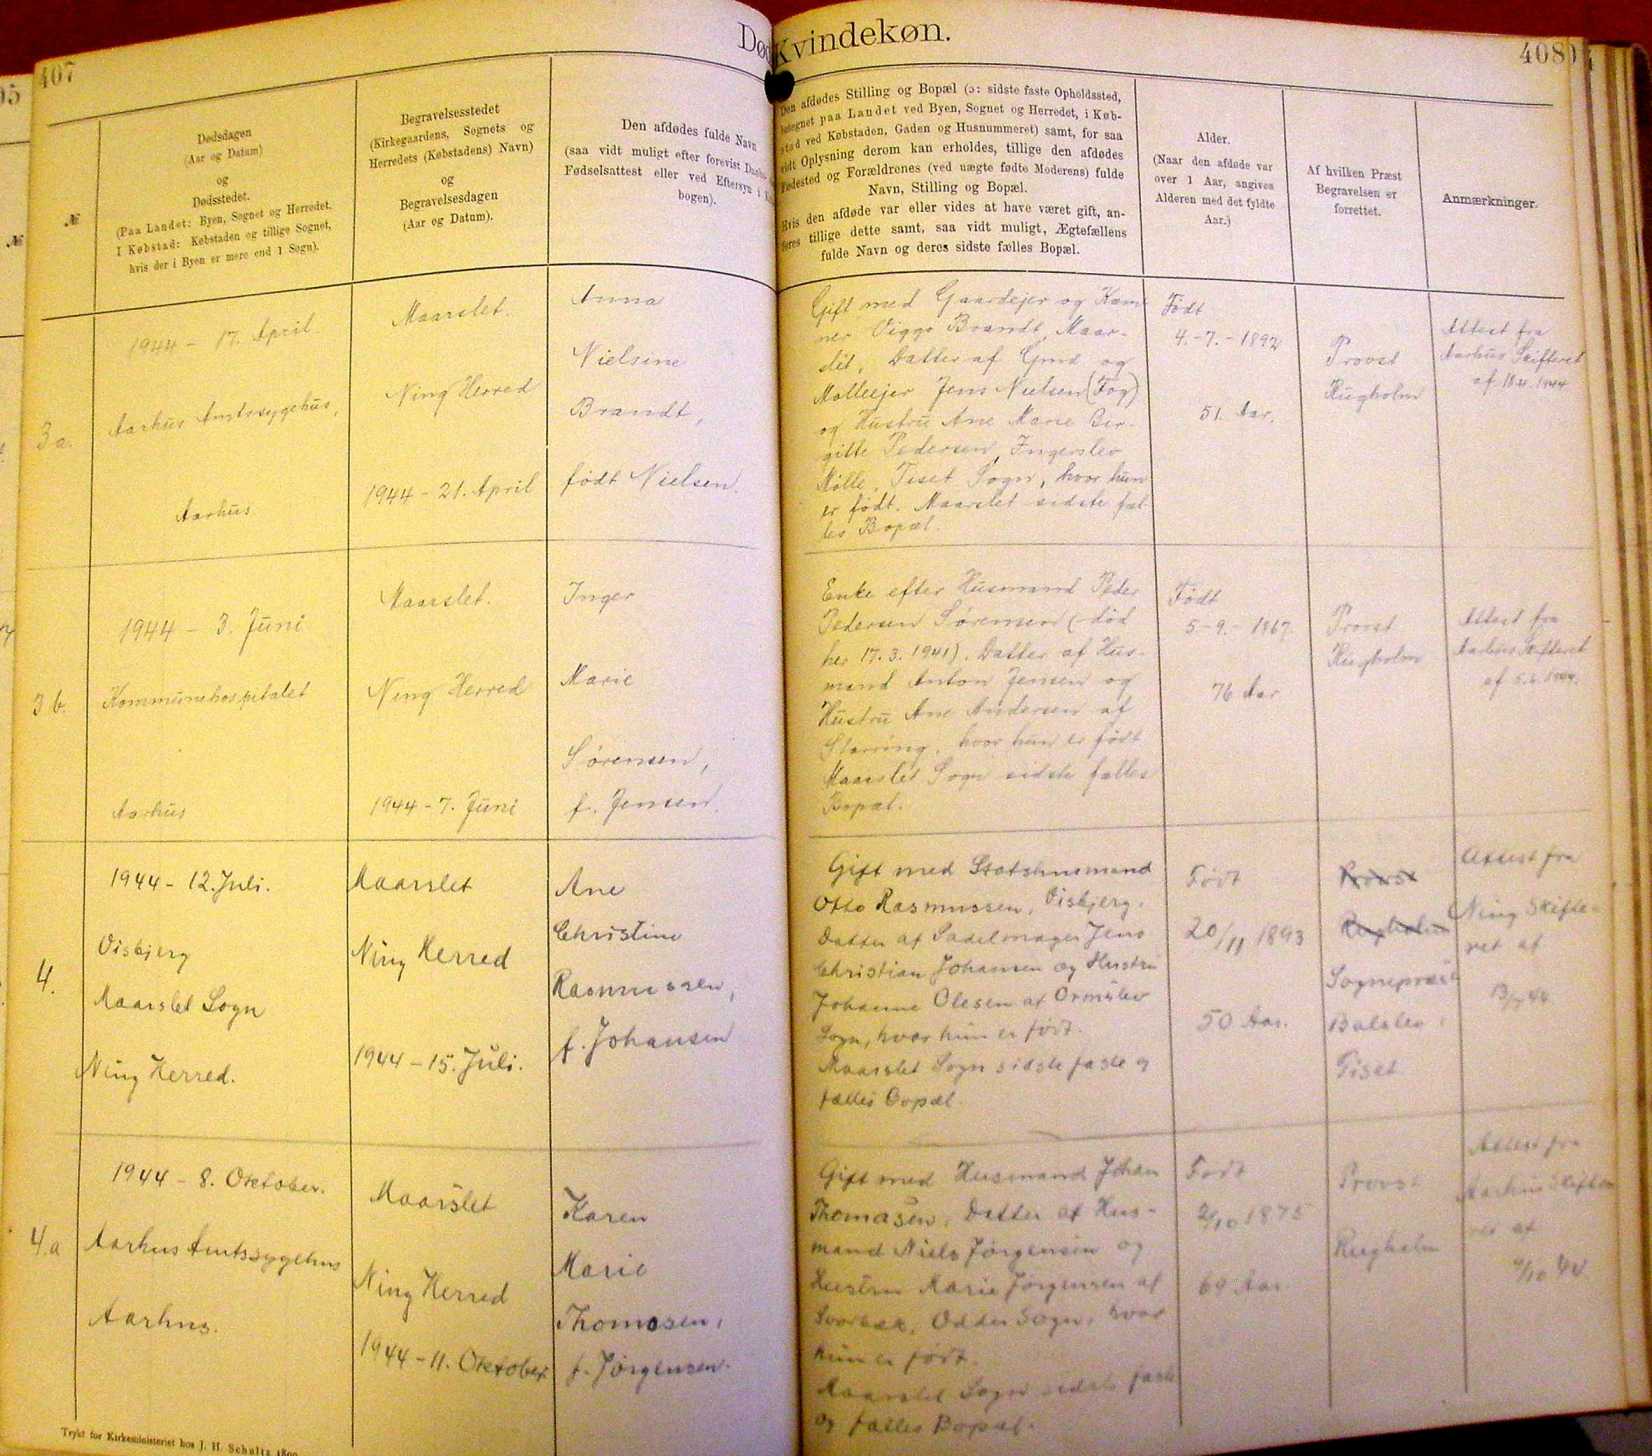 407
Død
Kvindekøn.
408
№
Dødsdagen
(Aar og Datum)
og
Dødsstedet.
(Paa Landet: Byen, Sognet og Herredet.
I Købstad: Købstaden og tillige Sognet,
hvis der i Byen er mere end 1 Sogn).
Begravelsesstedet
(Kirkegaardens, Sognets og
Herredets (Købstadens) Navn)
og
Begravelsesdagen
(Aar og Datum).
Den afdødes fulde Navn
(saa vidt muligt efter forevist
Fødselsattest eller ved Eftersyn i
bogen).
Den afdødes Stilling og Bopæl (ɔ: sidste faste Opholdssted,
betegnet paa Landet ved Byen, Sognet og Herredet, i Køb-
stad ved Købstaden, Gaden og Husnummeret) samt, for saa
vidt Oplysning derom kan erholdes, tillige den afdødes
Fødested og Forældrenes (ved uægte fødte Moderens) fulde
Navn, Stilling og Bopæl.
Hvis den afdøde var eller vides at have været gift, an-
føres tillige dette samt, saa vidt muligt, Ægtefællens
fulde Navn og deres sidste fælles Bopæl.
Alder.
(Naar den afdøde var
over 1 Aar, angives
Alderen med det fyldte
Aar.)
Af hvilken Præst
Begravelsen er
forrettet.
Anmærkninger.
3a.
1944 - 17. April.
Aarhus Amtssygehus,
Aarhus
Maarslet.
Ning Herred
1944 - 21. April
Anna
Nielsine
Brandt,
født Nielsen.
Gift med Gaardejer og Kam-
ner Viggo Brandt, Maar-
slet, Datter af Gmd og
Mølleejer Jens Nielsen (Fog)
og Hustru Ane Marie Bir-
gitte Pedersen, Ingerslev
Mølle, Tiset Sogn, hvor hun
er født. Maarslet sidste fæl-
les Bopæl.
Født
4.-7.-1892
51. Aar.
Provst
Rugholm
Attest fra
Aarhus Skifteret
af 18.4. 1944
3 b.
1944 - 3. Juni
Kommunehospitalet
Aarhus
Maarslet.
Ning Herred
1944 - 7. Juni
Inger
Marie
Sørensen,
f. Jensen.
Enke efter Husmand Peder
Pedersen Sørensen (død
her 17. 3. 1941). Datter af Hus-
mand Anton Jensen og
Hustru Ane Andersen af
Storring, hvor hun er født
Maarslet Sogn sidste fælles
Bopæl.
Født
5-9.-1867.
76 Aar
Provst
Rugholm
Attest fra
Aarhus Skifteret
af 5.6. 1944.
4.
1944 - 12. Juli.
Visbjerg
Maarslet Sogn
Ning Herred.
Maarslet
Ning Herred
1944 - 15. Juli.
Ane
Christine
Rasmussen,
f. Johansen
Gift med Statshusmand
Otto Rasmussen, Visbjerg.
Datter af Sadelmager Jens
Christian Johansen og Hustru
Johanne Olesen af Ormslev
Sogn, hvor hun er født.
Maarslet Sogn sidste faste og
fælles Bopæl.
Født
20/11 1893
50 Aar.
Provst
Rugholm
Sognepræst
Balslev,
Tiset
Attest fra
Ning Skifte-
ret af
13/7 44
4.a
1944 - 8. Oktober.
Aarhus Amtssygehus
Aarhus.
Maarslet
Ning Herred
1944 - 11. Oktober.
Karen
Marie
Thomasen,
f. Jørgensen.
Gift med Husmand Johan
Thomasen, Datter af Hus-
mand Niels Jørgensen og
Hustru Marie Jørgensen af
Svorbæk, Odder Sogn, hvor
hun er født.
Maarslet Sogn sidste faste
og fælles Bopæl.
Født
2/10 1875
69 Aar
Provst
Rugholm
Attest fra
Aarhus Skifte-
ret af
9/10 44.
Trykt for Kirkeministeriet hos J. H. Schultz